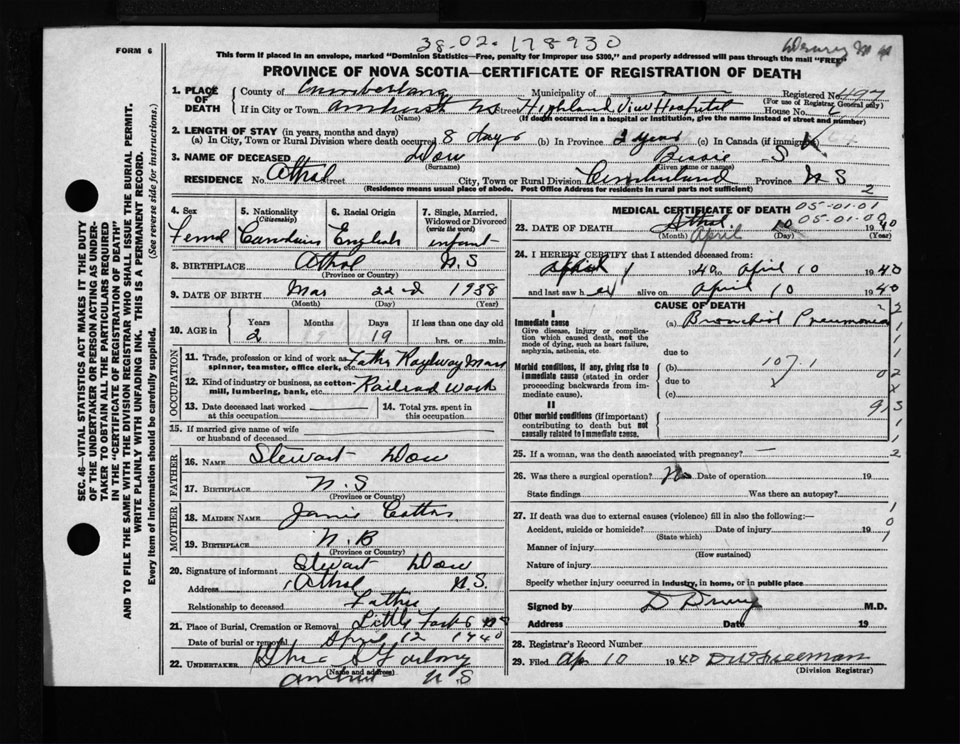 38-02-178930
FORM 6
This form if placed in an envelope, marked "Dominion Statistics—Free, penalty for improper use $300," and properly addressed will pass through the mail "FREE"
PROVINCE OF NOVA SCOTIA—CERTIFICATE OF REGISTRATION OF DEATH
SEC. 46—VITAL STATISTICS ACT MAKES IT THE DUTY
OF THE UNDERTAKER OR PERSON ACTING AS UNDER-
TAKER TO OBTAIN ALL THE PARTICULARS REQUIRED
IN THE "CERTIFICATE OF REGISTRATION OF DEATH"
AND TO FILE THE SAME WITH THE DIVISION REGISTRAR WHO SHALL ISSUE THE BURIAL PERMIT.
WRITE PLAINLY WITH UNFADING INK. THIS IS A PERMANENT RECORD.
Every item of information should be carefully supplied. (See reverse side for instructions.)
1. PLACE OF DEATH
County of Cumberland Municipality of Registered No. 497
(For use of Registrar General only)
If in City or Town Amherst NS Street Highland View Hospital House No.
(Name) (If death occurred in a hospital or institution, give the name instead of street and number)
2. LENGTH OF STAY (in years, months and days)
(a) In City, Town or Rural Division where death occurred 8 days (b) In Province 2 years (c) In Canada (if immigrant)
3. NAME OF DECEASED Dow Bessie S
(Surname) (Given name or names)
RESIDENCE No. Athol Street City, Town or Rural Division Cumberland Province N S
(Residence means usual place of abode. Post Office Address for residents in rural parts not sufficient) 2
4. Sex Femal
5. Nationality (Citizenship) Candain
6. Racial Origin English
7. Single, Married, Widowed or Divorced (write the word) infant
8. BIRTHPLACE Athol N.S
(Province or Country)
9. DATE OF BIRTH Mar 22nd 1938
(Month) (Day) (Year)
10. AGE in Years 2 Months Days 19 If less than one day old
hrs. or min.
OCCUPATION
11. Trade, profession or kind of work as spinner, teamster, office clerk, etc. Father Raylway Man
12. Kind of industry or business, as cotton-mill, lumbering, bank, etc. Railroad Work
13. Date deceased last worked at this occupation
14. Total yrs. spent in this occupation
15. If married give name of wife or husband of deceased
FATHER
16. NAME Stewart Dow
17. BIRTHPLACE N.S
(Province or Country)
MOTHER
18. MAIDEN NAME
19. BIRTHPLACE N.B
(Province or Country)
20. Signature of informant Stewart Dow
Address Athol N.S.
Relationship to deceased Father
21. Place of Burial, Cremation or Removal Little Forks NS
Date of burial or removal April 12 1940
22. UNDERTAKER
(Name and address)
Amherst N.S
MEDICAL CERTIFICATE OF DEATH 05-01-01
05-01-00
23. DATE OF DEATH Athol April 10 1940
(Month) (Day) (Year)
24. I HEREBY CERTIFY that I attended deceased from:
April 1 1940 to April 10 1940
and last saw her alive on April 10 1940
CAUSE OF DEATH
I
Immediate cause
Give disease, injury or complication which caused death, not the mode of dying, such as heart failure, asphyxia, asthenia, etc.
(a) Bronchial Pneumonia
due to
Morbid conditions, if any, giving rise to immediate cause (stated in order proceeding backwards from immediate cause)
(b) 107.1
due to
(c)
II
Other morbid conditions (if important) contributing to death but not causally related to immediate cause.
25. If a woman, was the death associated with pregnancy? —
26. Was there a surgical operation? No Date of operation 19
State findings Was there an autopsy?
27. If death was due to external causes (violence) fill in also the following:—
Accident, suicide or homicide? Date of injury 19
(State which)
Manner of injury
(How sustained)
Nature of injury
Specify whether injury occurred in industry, in home, or in public place
Signed by D Drury M.D.
Address Date 19
28. Registrar's Record Number
29. Filed Ap. 10 1940 D W Freeman
(Division Registrar)